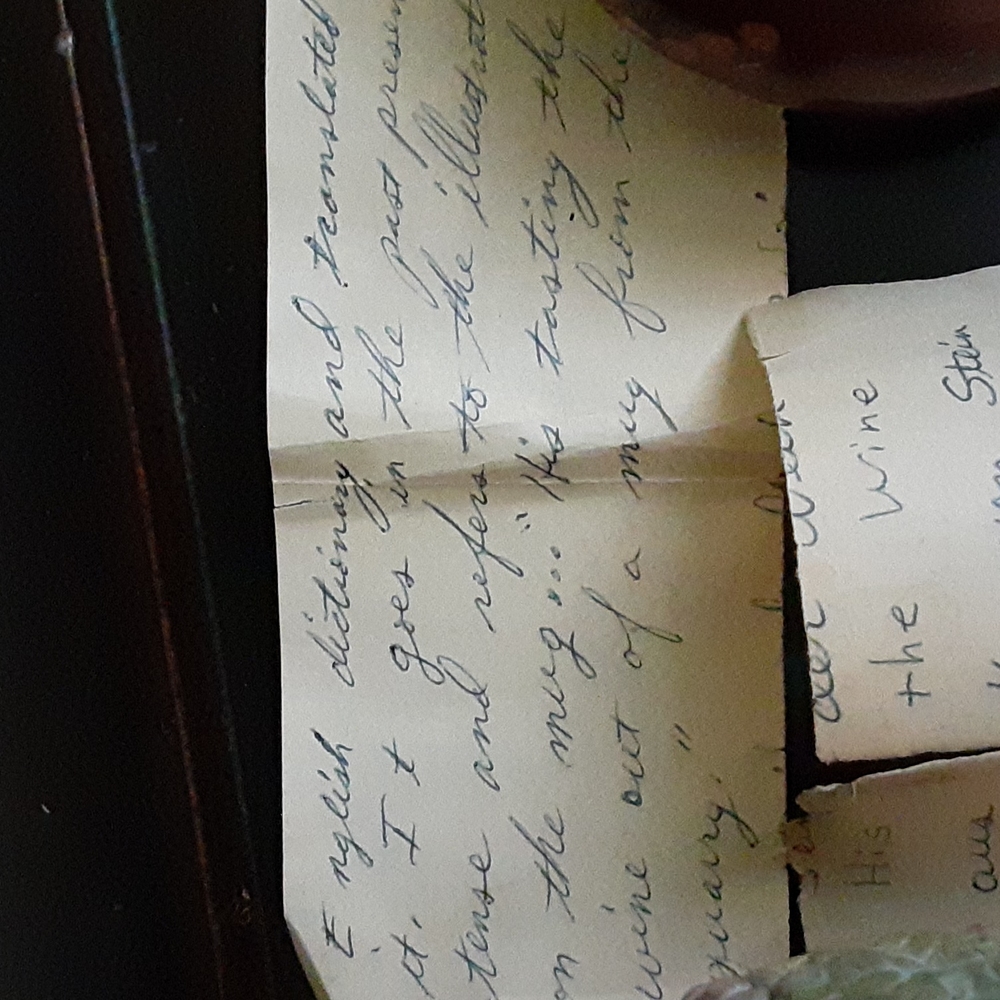 English dictionary and translated
it. It goes in the past presen
tense and refers to the illustrat
on the mug... "His tasting the
wine out of a mug from the
quarry."
den Wein
the wine
Stein
His
aus